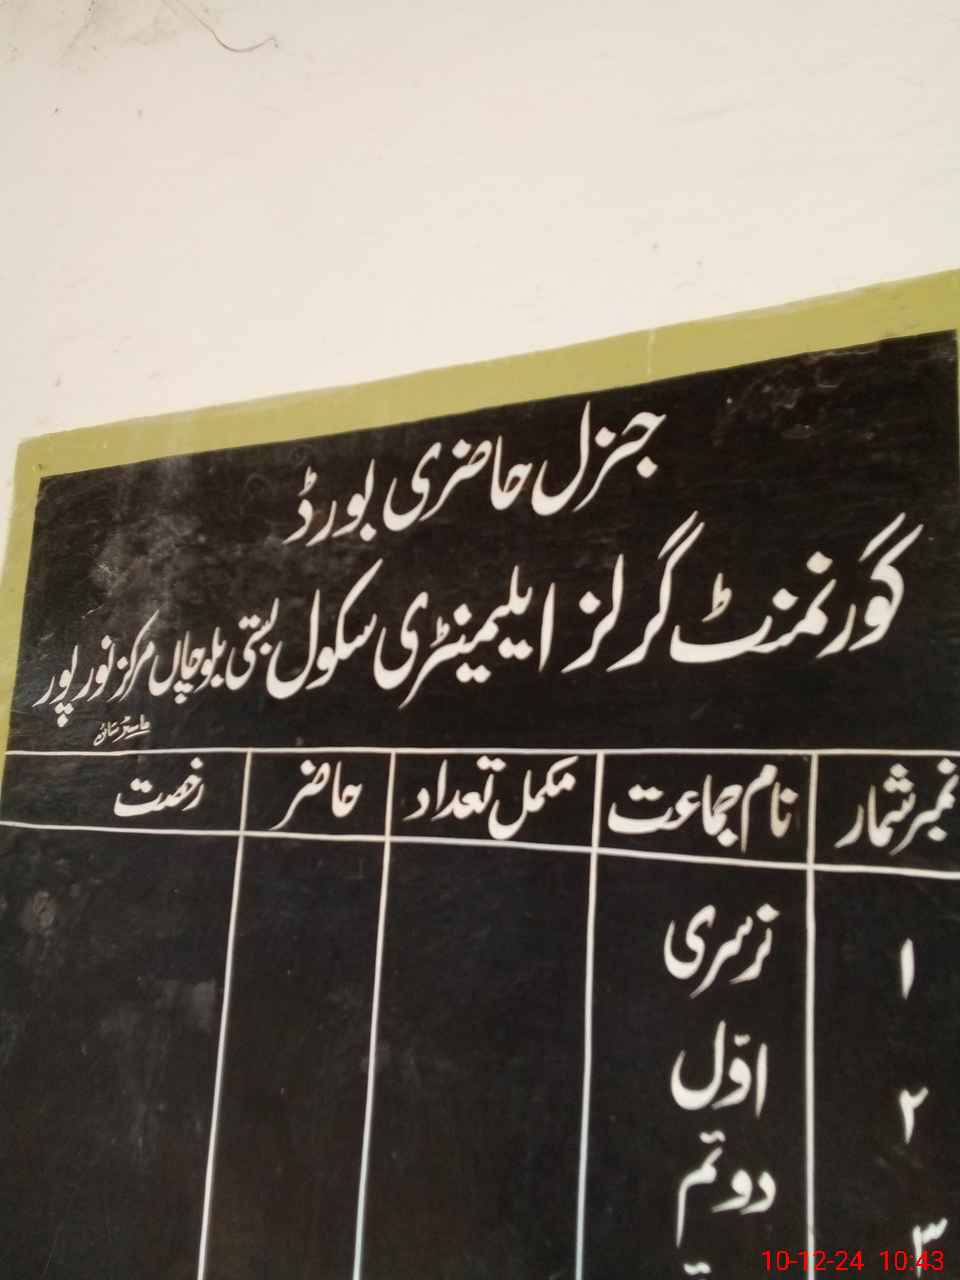 جنرل حاضری بورڈ
گورنمنٹ گرلز ایلیمینٹری سکول بستی بلوچاں مرکز نور پور
نمبر شمار نام جماعت مکمل تعداد حاضر رخصت
۱ نرسری
۲ اوّل
۳ دوئم
10-12-24 10:43